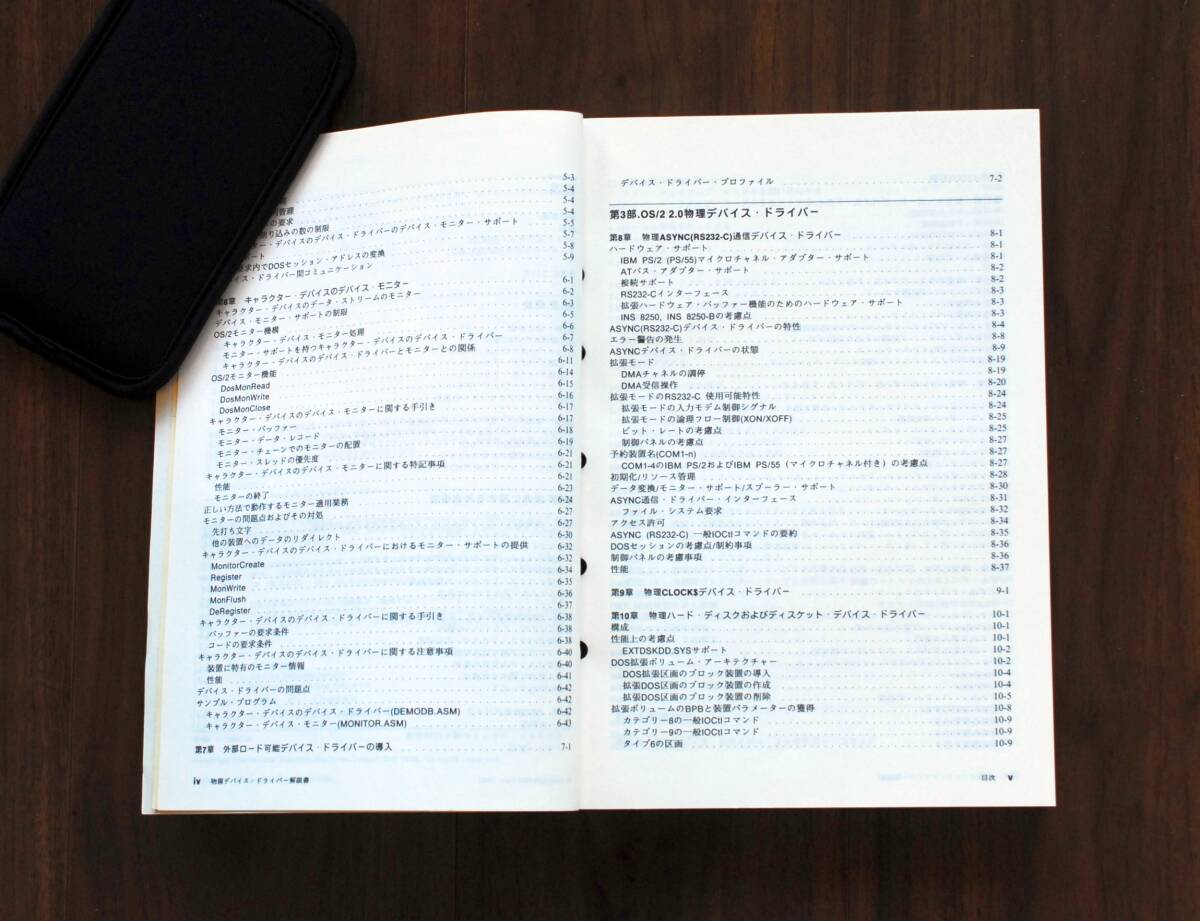 5-3
5-4
5-4
管理 5-4
の要求 5-5
り込みの数の制限 5-7
・デバイスのデバイス・ドライバーのデバイス・モニター・サポート 5-8
ート 5-9
要求内でDOSセッション・アドレスの変換
イス・ドライバー間コミュニケーション
第6章 キャラクター・デバイスのデバイス・モニター 6-1
キャラクター・デバイスのデータ・ストリームのモニター 6-2
デバイス・モニター・サポートの制限 6-3
OS/2モニター機構 6-5
キャラクター・デバイス・モニター処理 6-6
モニター・サポートを持つキャラクター・デバイスのデバイス・ドライバー 6-7
キャラクター・デバイスのデバイス・ドライバーとモニターとの関係 6-8
OS/2モニター機能 6-11
DosMonRead 6-14
DosMonWrite 6-15
DosMonClose 6-16
キャラクター・デバイスのデバイス・モニターに関する手引き 6-17
モニター・バッファー 6-17
モニター・データ・レコード 6-18
モニター・チェーンでのモニターの配置 6-19
モニター・スレッドの優先度 6-21
キャラクター・デバイスのデバイス・モニターに関する特記事項 6-21
性能 6-21
モニターの終了 6-23
正しい方法で動作するモニター適用業務 6-24
モニターの問題点およびその対処 6-27
先打ち文字 6-27
他の装置へのデータのリダイレクト 6-30
キャラクター・デバイスのデバイス・ドライバーにおけるモニター・サポートの提供 6-32
MonitorCreate 6-32
Register 6-34
MonWrite 6-35
MonFlush 6-36
DeRegister 6-37
キャラクター・デバイスのデバイス・ドライバーに関する手引き 6-38
バッファーの要求条件 6-38
コードの要求条件 6-38
キャラクター・デバイスのデバイス・ドライバーに関する注意事項 6-40
装置に特有のモニター情報 6-40
性能 6-41
デバイス・ドライバーの問題点 6-42
サンプル・プログラム 6-42
キャラクター・デバイスのデバイス・ドライバー(DEMODB.ASM) 6-42
キャラクター・デバイス・モニター(MONITOR.ASM) 6-43
第7章 外部ロード可能デバイス・ドライバーの導入 7-1
iv 物理デバイス・ドライバー解説書
デバイス・ドライバー・プロファイル 7-2
第3部.OS/2 2.0物理デバイス・ドライバー
第8章 物理ASYNC(RS232-C)通信デバイス・ドライバー 8-1
ハードウェア・サポート 8-1
IBM PS/2 (PS/55)マイクロチャネル・アダプター・サポート 8-1
ATバス・アダプター・サポート 8-2
接続サポート 8-2
RS232-Cインターフェース 8-3
拡張ハードウェア・バッファー機能のためのハードウェア・サポート 8-3
INS 8250, INS 8250-Bの考慮点 8-3
ASYNC(RS232-C)デバイス・ドライバーの特性 8-4
エラー警告の発生 8-8
ASYNCデバイス・ドライバーの状態 8-9
拡張モード 8-19
DMAチャネルの調停 8-19
DMA受信操作 8-20
拡張モードのRS232-C 使用可能特性 8-24
拡張モードの入力モデム制御シグナル 8-24
拡張モードの論理フロー制御(XON/XOFF) 8-25
ビット・レートの考慮点 8-25
制御パネルの考慮点 8-27
予約装置名(COM1-n) 8-27
COM1-4のIBM PS/2およびIBM PS/55（マイクロチャネル付き）の考慮点 8-27
初期化/リソース管理 8-28
データ変換/モニター・サポート/スプーラー・サポート 8-30
ASYNC通信・ドライバー・インターフェース 8-31
ファイル・システム要求 8-32
アクセス許可 8-34
ASYNC (RS232-C) 一般IOCtlコマンドの要約 8-35
DOSセッションの考慮点/制約事項 8-36
制御パネルの考慮事項 8-36
性能 8-37
第9章 物理CLOCK$デバイス・ドライバー 9-1
第10章 物理ハード・ディスクおよびディスケット・デバイス・ドライバー 10-1
構成 10-1
性能上の考慮点 10-1
EXTDSKDD.SYSサポート 10-2
DOS拡張ボリューム・アーキテクチャー 10-2
DOS拡張区画のブロック装置の導入 10-4
拡張DOS区画のブロック装置の作成 10-4
拡張DOS区画のブロック装置の削除 10-5
拡張ボリュームのBPBと装置パラメーターの獲得 10-8
カテゴリー8の一般IOCtlコマンド 10-9
カテゴリー9の一般IOCtlコマンド 10-9
タイプ6の区画 10-9
目次 v